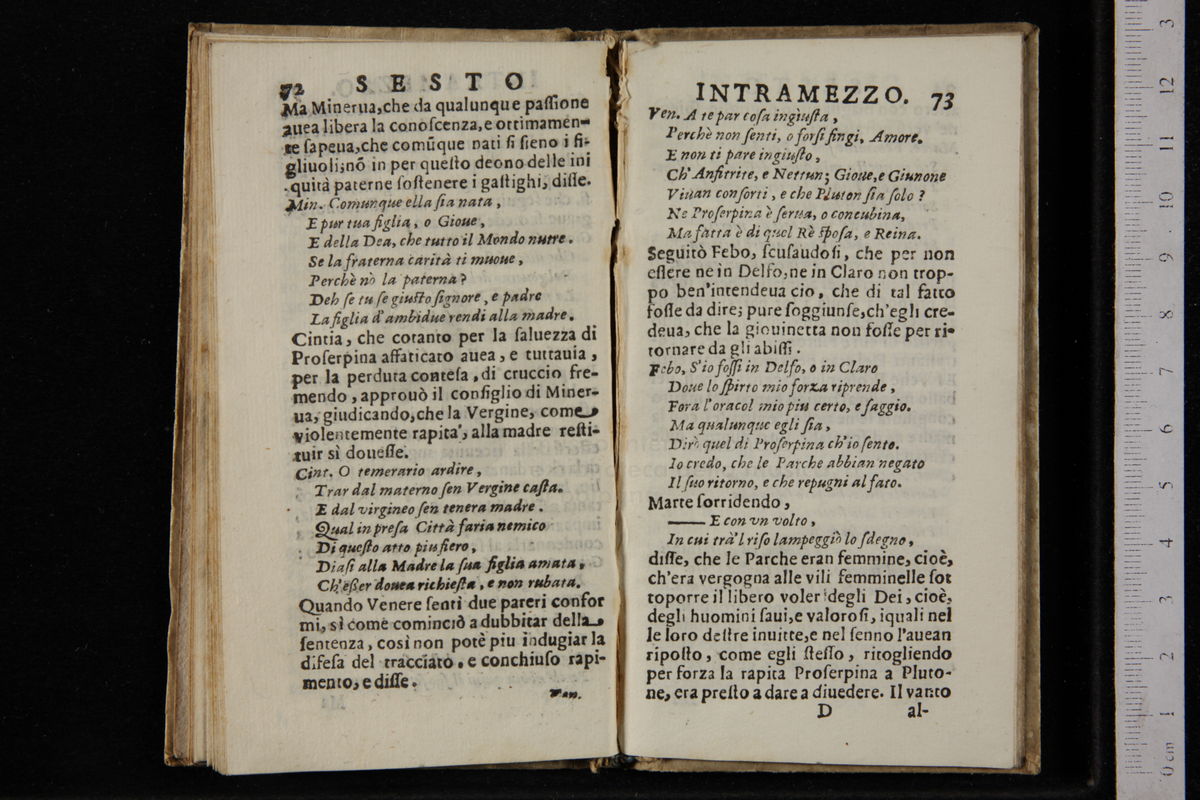 72 SESTO
Ma Minerua,che da qualunque paſſione
auea libera la conoſcenza,e ottimamen-
te ſapeua,che comũque nati ſi ſieno i fi-
gliuoli;nõ in per queſto deono delle ini
quità paterne ſoſtenere i gaſtighi, diſſe.
Min. Comunque ella ſia nata,
E pur tua figlia, o Gioue,
E della Dea, che tutto il Mondo nutre.
Se la fraterna carità ti muoue,
Perchè nò la paterna?
Deh ſe tu ſe giuſto ſignore, e padre
La figlia d'ambidue rendi alla madre.
Cintia, che cotanto per la ſaluezza di
Proſerpina affaticato auea, e tuttauia,
per la perduta conteſa, di cruccio fre-
mendo, approuò il conſiglio di Miner-
ua, giudicando,che la Vergine, come
violentemente rapita, alla madre reſti-
tuir sì doueſſe.
Cint. O temerario ardire,
Trar dal materno ſen Vergine caſta.
E dal virgineo ſen tenera madre.
Qual in preſa Città faria nemico
Di queſto atto piu fiero,
Diaſi alla Madre la ſua figlia amata,
Ch'eßer douea richieſta, e non rubata.
Quando Venere ſentì due pareri confor
mi, sì come cominciò a dubbitar della
ſentenza, così non potè piu indugiar la
difeſa del tracciato. e conchiuſo rapi-
mento, e diſſe.
Ven.
INTRAMEZZO. 73
Ven. A te par coſa ingiuſta,
Perchè non ſenti, o forſi fingi, Amore.
E non ti pare ingiuſto,
Ch'Anfitrite, e Nettun; Gioue,e Giunone
Viuan conſorti, e che Pluton ſia ſolo?
Ne Proſerpina è ſerua, o concubina,
Ma fatta è di quel Rè ſpoſa, e Reina.
Seguitò Febo, ſcuſaudoſi, che per non
eſſere ne in Delfo,ne in Claro non trop-
po ben'intendeua cio, che di tal fatto
foſſe da dire; pure ſoggiunſe,ch'egli cre-
deua, che la giouinetta non foſſe per ri-
tornare da gli abiſſi.
Febo, S'io foſſi in Delfo, o in Claro
Doue lo ſpirto mio forza riprende,
Fora l'oracol mio piu certo, e ſaggio.
Ma qualunque egli ſia,
Dirò quel di Proſerpina ch'io ſento.
Io credo, che le Parche abbian negato
Il ſuo ritorno, e che repugni al fato.
Marte ſorridendo,
—— E con vn volto,
In cui trà'l riſo lampeggiò lo ſdegno,
diſſe, che le Parche eran femmine, cioè,
ch'era vergogna alle vili femminelle ſot
toporre il libero voler degli Dei, cioè,
degli huomini ſaui,e valoroſi, iquali nel
le loro deſtre inuitte,e nel ſenno l'auean
ripoſto, come egli ſteſſo, ritogliendo
per forza la rapita Proſerpina a Pluto-
ne, era preſto a dare a diuedere. Il vanto
D al-
0 cm 1 2 3 4 5 6 7 8 9 10 11 12 13